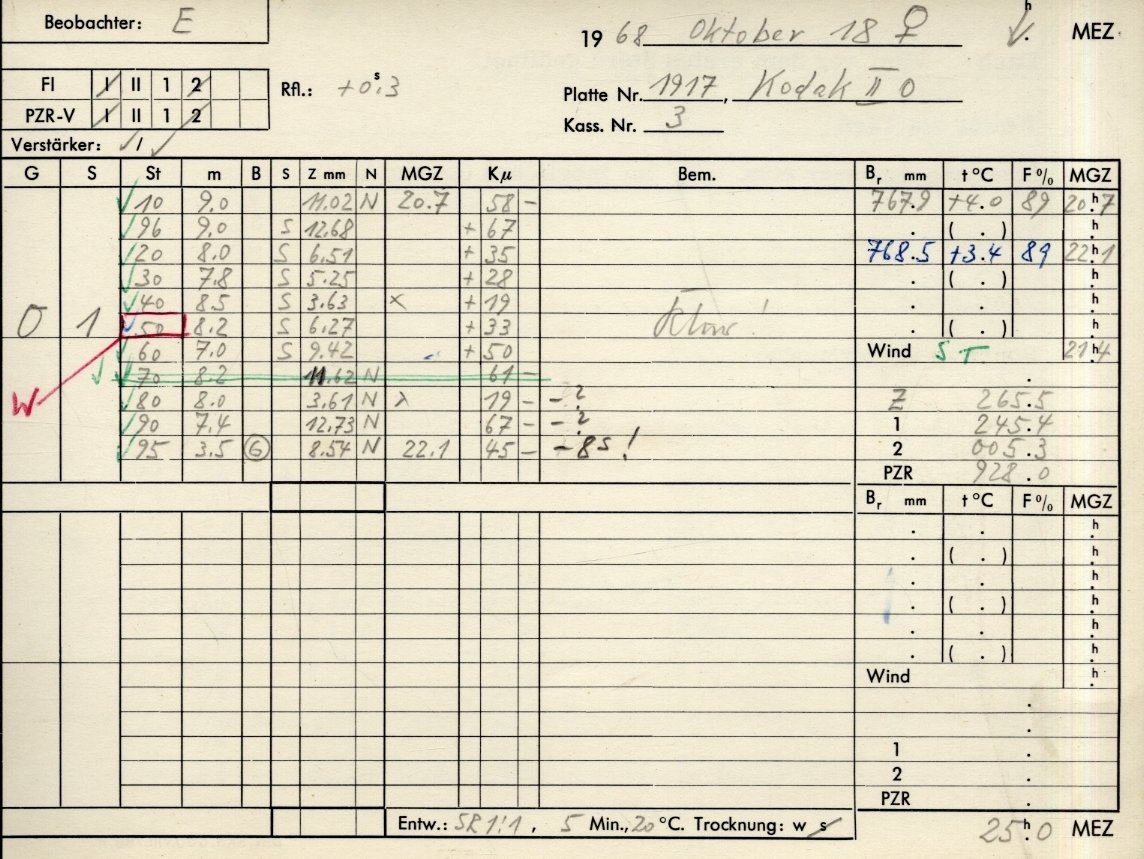 Beobachter: E
1968 Oktober 18 ♀ h. MEZ
FI I II 1 2 Rfl.: +0.ˢ3
PZR-V I II 1 2
Platte Nr. 1917, Kodak II 0
Kass. Nr. 3
Verstärker: /
G S St m B S Z mm N MGZ Kμ Bem. Br mm t °C F % MGZ
10 9.0 11.02 N 20.7 58 – 767.9 +4.0 89 20.ʰ7
96 9.0 S 12.68 + 67 . ( . ) .ʰ
20 8.0 S 6.51 + 35 768.5 +3.4 89 22.ʰ1
30 7.8 S 5.25 + 28 . ( . ) .ʰ
40 8.5 S 3.63 × + 19 . . .ʰ
0 1 50 8.2 S 6.27 + 33 . ( . ) .ʰ
60 7.0 S 9.42 + 50 Wind ST 21.ʰ4
70 8.2 11.62 N 61 – .
W 80 8.0 3.61 N λ 19 – – ? Z 265.5
90 7.4 12.73 N 67 – – ? 1 245.4
95 3.5 6 8.54 N 22.1 45 – – 8s! 2 005.3
PZR 928.0
Br mm t °C F % MGZ
. . .ʰ
. ( . ) .ʰ
. . .ʰ
. ( . ) .ʰ
. . .ʰ
. ( . ) .ʰ
Wind .ʰ
.
.
1 .
2 .
PZR .
Entw.: SR 1:1, 5 Min., 20 °C. Trocknung: w s
25.ʰ0 MEZ